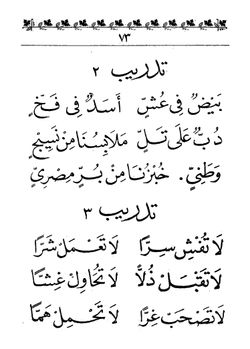 ٧٣
تدريب ٢
بَيْضٌ فِى عُشٍّ أَسَدٌ فِى فَخٍّ
دُبٌّ عَلَى تَلٍّ مَلَابِسُنَا مِنْ نَسِيجٍ
وَطَنِيٍّ . خُبْزُنَا مِنْ بُرٍّ مِصْرِيٍّ
تدريب ٣
لَا تُفْشِ سِرًّا لَا تَعْمَلْ شَرًّا
لَا تَقْبَلْ ذُلًّا لَا تُحَاوِلْ غِشًّا
لَا تَصْحَبْ غِرًّا لَا تَحْمِلْ هَمًّا